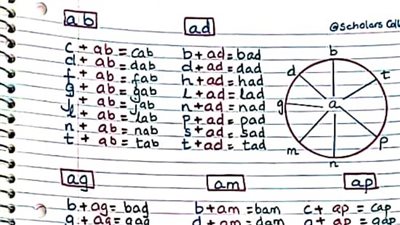 ab
c + ab = cab
d + ab = dab
f + ab = fab
g + ab = gab
j + ab = jab
l + ab = lab
n + ab = nab
t + ab = tab
ad
b + ad = bad
d + ad = dad
h + ad = had
l + ad = lad
n + ad = nad
p + ad = pad
s + ad = sad
t + ad = tad
@Scholars
b
d
t
g
a
m
p
n
ag
b + ag = bad
g + ag = gag
am
b + am = bam
d + am = dam
ap
c + ap = cap